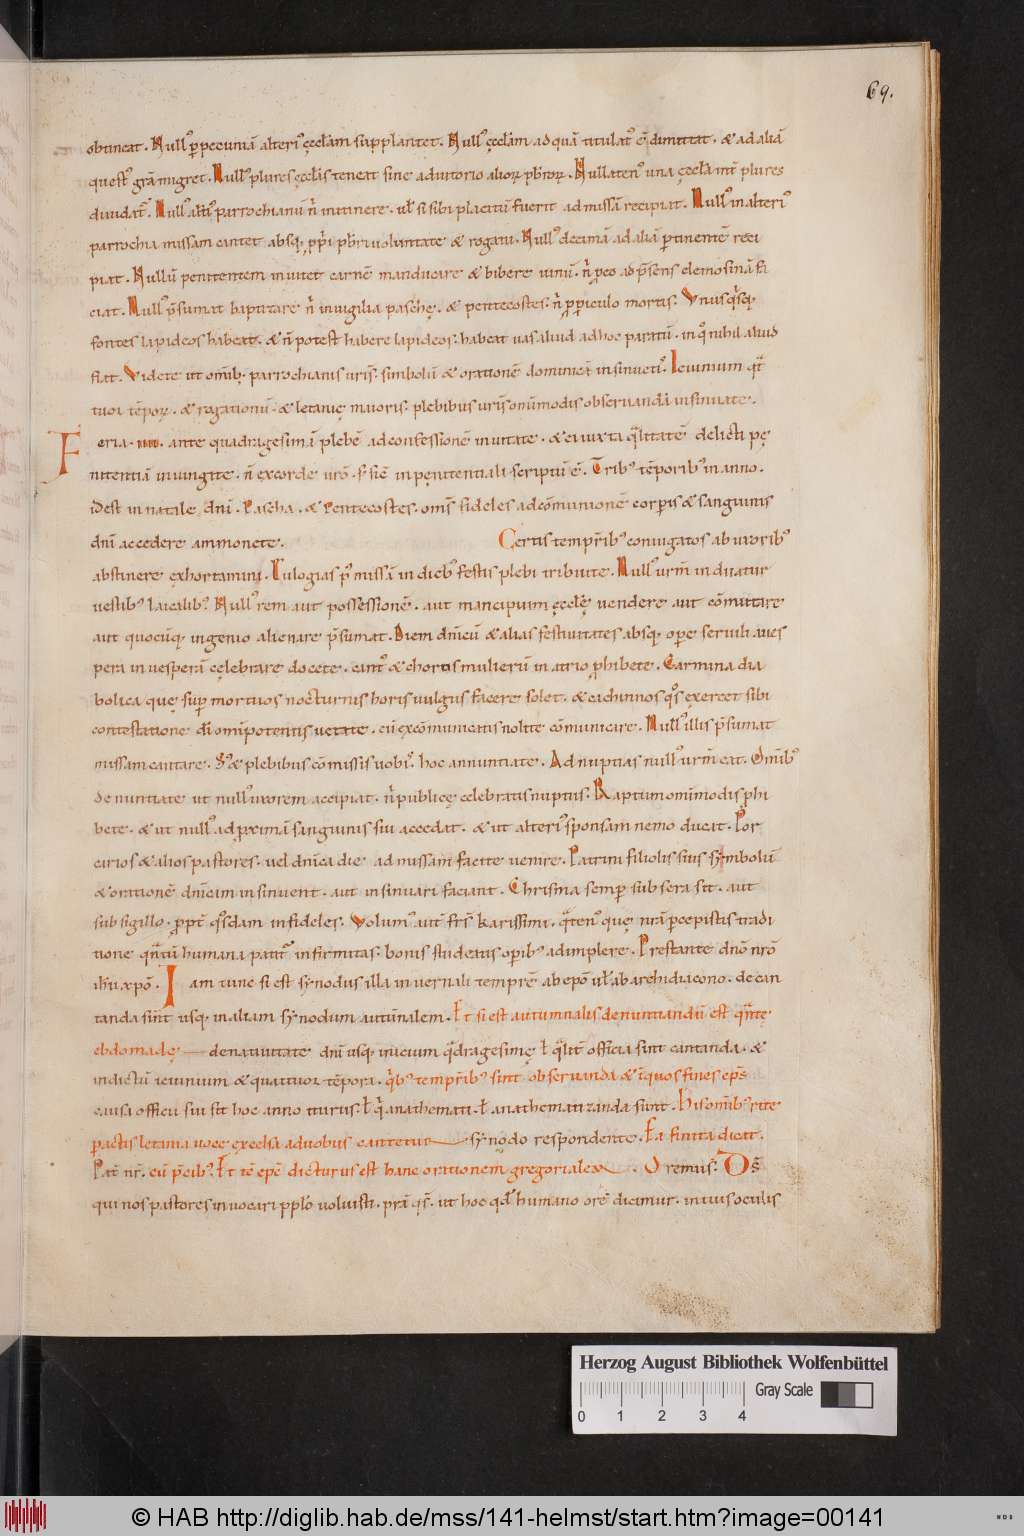 69.
obtineat. Null᷒ p pecuniā alteri᷒ ęccłam supplantet. Null᷒ ęccłam ad quā titulat᷒ ē dimittat. & ad aliā
questᷣ grā migret. Null᷒ plures ęccłis teneat sine adiutorio alioꝝ pbroꝝ. Nullaten᷒ una ęccła int̄ plures
diuidat᷑. Null᷒ parrochianū n̄ in itinere. uł si sibi placitū fuerit ad missā recipiat. Null᷒ in alteri᷒
parrochia missam cantet absq; ppi pbri uoluntate & rogatu. Null᷒ decimā ad aliā ptinentē reci
piat. Nullū penitentem inuitet carnē manducare & bibere uinū. n̄ ꝓ eo ad psens elemosinā fa
ciat. Null᷒ psumat baptizare n̄ in uigilia paschę. & pentecostes. n̄ ꝓ piculo mortis. Vnusqsq;
fontes lapideos habeat. & si n̄ potest habere lapideos: habeat uas aliud ad hoc paratū. in qo nihil aliud
fiat. Videte ut omīb; parrochianis uris. simbolū & orationē dominicā insinueti᷒. Ieiunium qͣt
tuor tēpoꝝ. & rogationū. & letanię maioris. plebibus uris omīmodis obseruandā insinuate.
Feria. IIII. ante quadragesimā plebē ad confessionē inuitate. & ei iuxta qͣlitatē delicti pę
nitentiā iniungite. n̄ ex corde uro. s; sic̄ in pęnitentiali scriptū ē. Trib᷒ tēporib᷒ in anno.
idest in natale dnī. Pascha. & Pentecostes. oms fideles ad cōmunionē corporis & sanguinis
dnī accedere ammonete. Certis temprib᷒ coniugatos ab uxorib᷒
abstinere exhortamini. Eulogias p᷒ missā in dieb᷒ festis plebi tribuite. Null᷒ urm induatur
uestib᷒ laicalib᷒. Null᷒ rem aut possessionē. aut mancipium ęccłę uendere aut cōmutare
aut quocūq; ingenio alienare psumat. Diem dnicū & alias festiuitates absq; ope seruili a ues
pera in uesperā cęlebrare docete. cant᷒ & choros mulierū in atrio ꝓhibete. Carmina dia
bolica quę sup mortuos nocturnis horis uulgus facere solet. & cachinnos qos exercet sibi
contestatione dī omīpotentis uetate. cū excōmunicatis nolite cōmunicare. Null᷒ illis psumat
missam cantare. S; & plebibus cōmissis uobis. hoc annuntiate. Ad nuptias null᷒ urm eat. Omīb᷒
denuntiate ut null᷒ uxorem accipiat. n̄ publicę celebratis nuptiis. Raptum omīmodis ꝓhi
bete. & ut null᷒ ad ꝓximā sanguinis sui accedat. & ut alteri᷒ sponsam nemo ducat. Por
carios & alios pastores. uel dnica die ad missam facite uenire. Patrini filiolis suis symbolū
& orationē dnicam insinuent. aut insinuari faciant. Chrisma semp sub sera sit. aut
sub sigillo. ꝓpt qosdam infideles. Volum᷒ aut frs karissimi. qͣten᷒ quę nrā pcepistis tradi
tione qͣntū humana patit᷑ infirmitas. bonis studeatis opib᷒ adimplere. Prestante dno nro
ihu xpo. Iam tunc si est synodus illa in uernali temprē ab epo uł ab archidiacono. decan
tanda sint usq; in aliam synodum autūnalem. Et si est autumnalis denuntiandū est qͣntę
ebdomadę — de natiuitate dnī usq; inicium qͣdragesimę ł qͣlit officia sint cantanda. &
indictū ieiunium & quattuor tēpora. qͣb᷒ temprib᷒ sint obseruanda & ī quos fines eps
causa officii sui sit hoc anno iturus. ł qͥ anathemati. ł anathematizanda sunt. His omīb᷒ rite
pactis letania uoce excelsa a duobus cantetur — synodo respondente. Ea finita dicat.
Pat nr. cū pcib᷒. Et tc epc dicturus est hanc orationem gregorialem. Oremus. Ds
qui nos pastores in uocari pplo uoluisti. pra qs. ut hoc qd humano ore dicimur. in tuis oculis
Herzog August Bibliothek Wolfenbüttel
Gray Scale
0 1 2 3 4
© HAB http://diglib.hab.de/mss/141-helmst/start.htm?image=00141